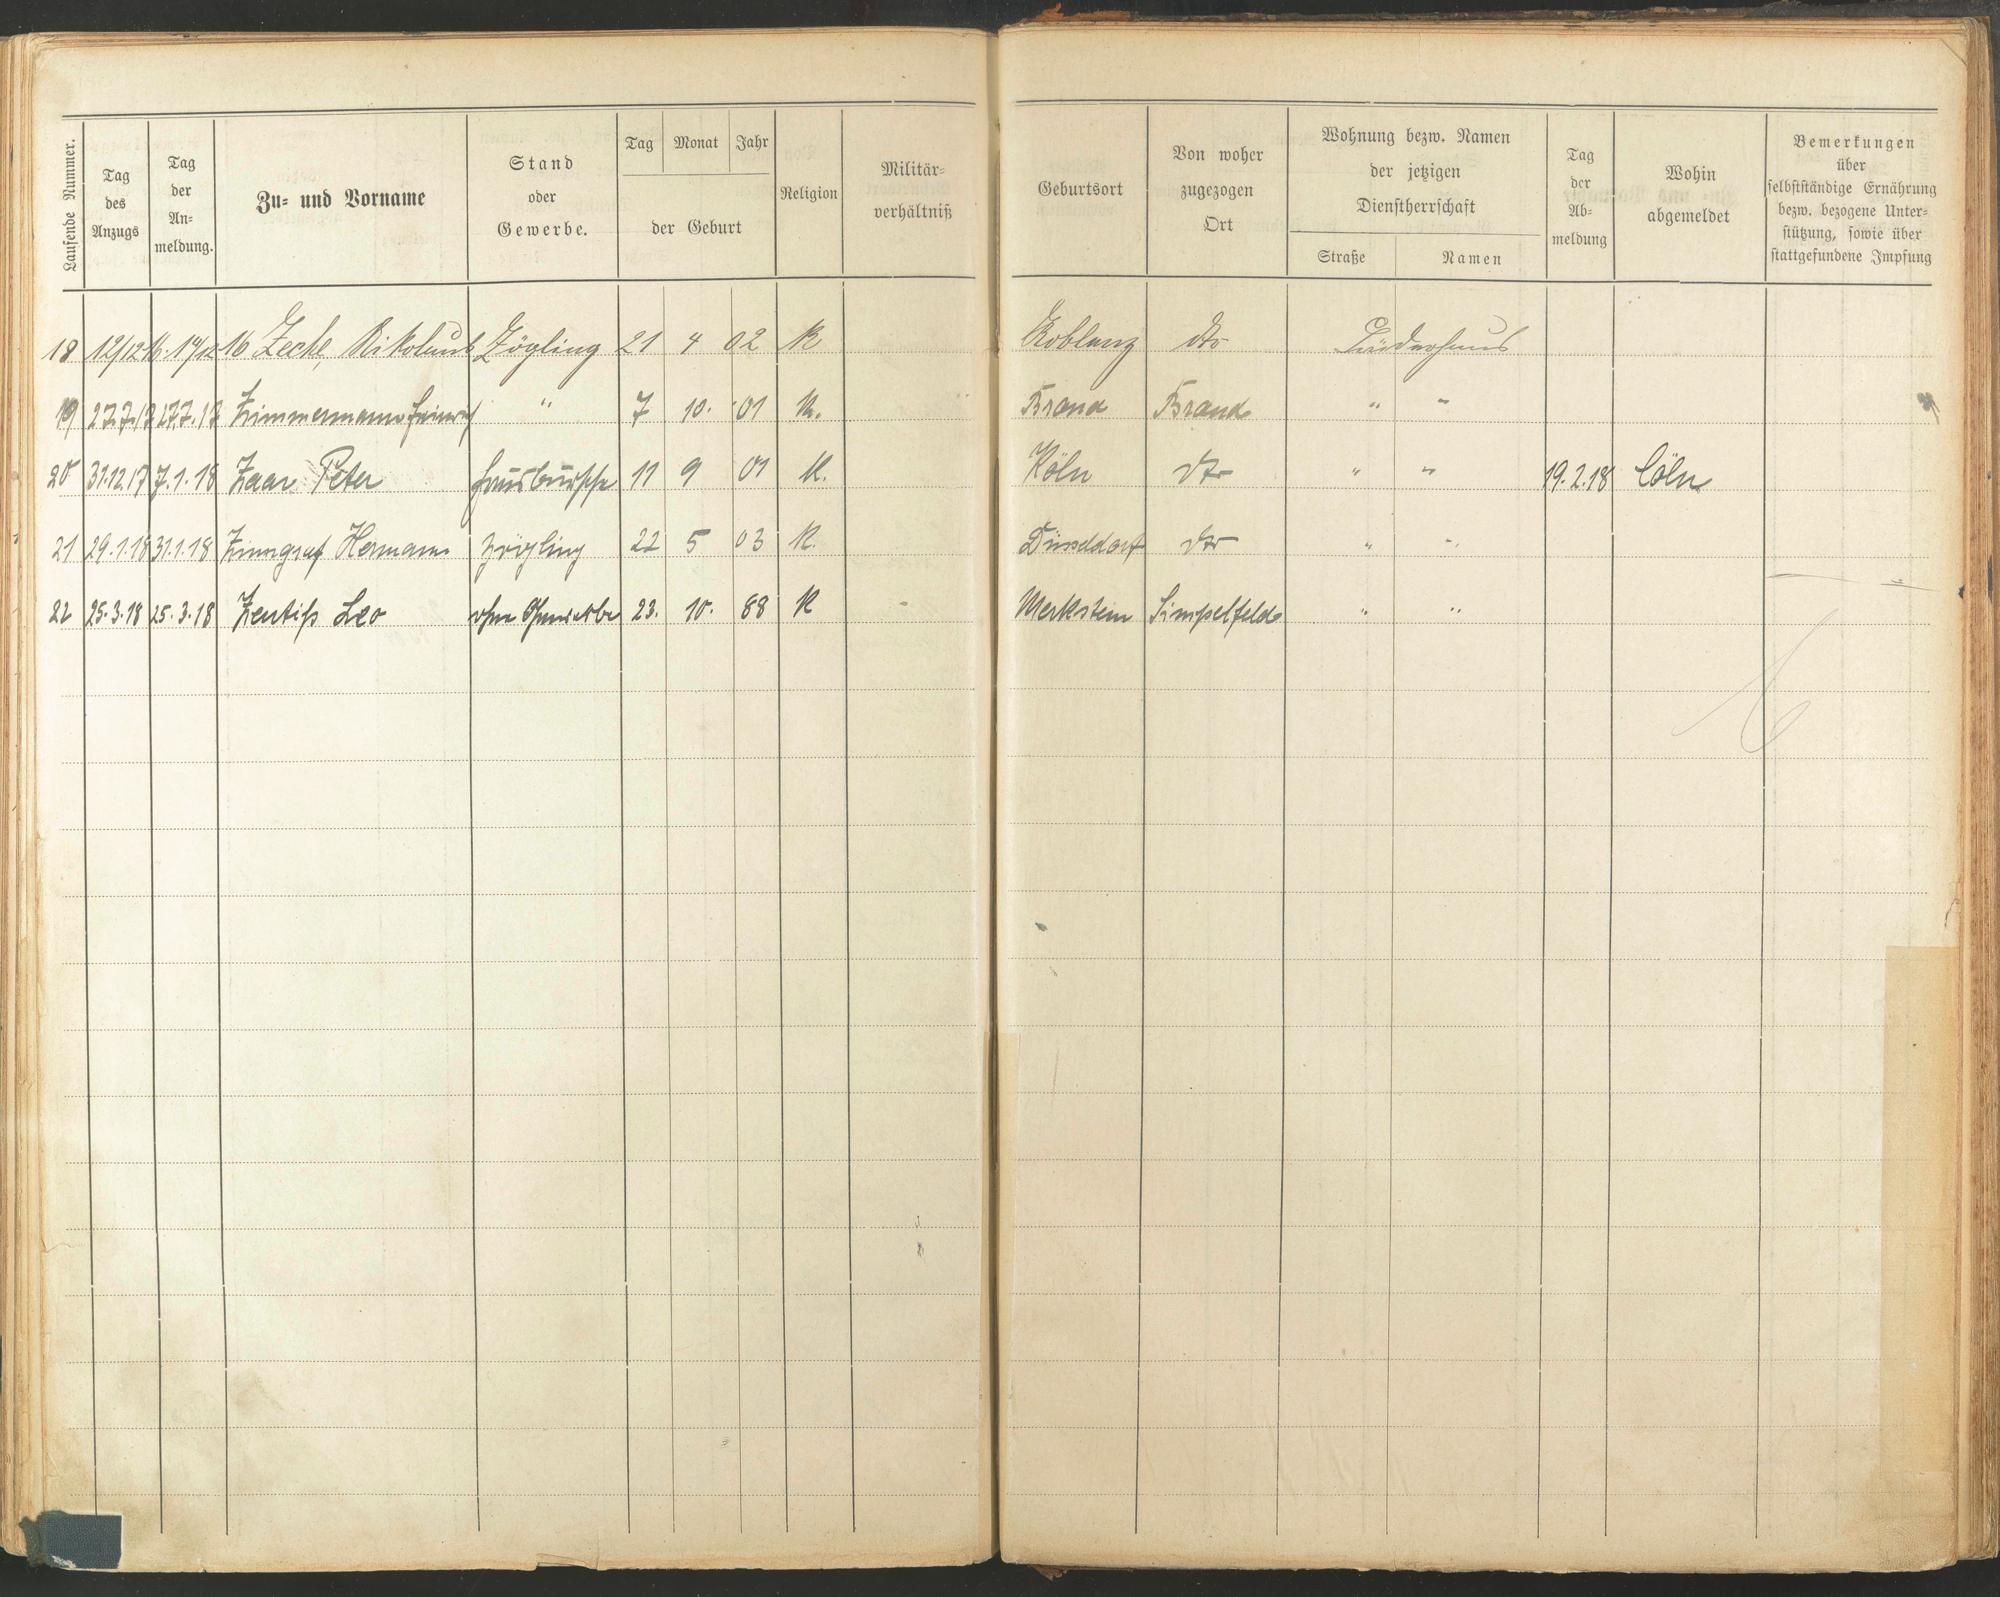 Laufende Nummer.
Tag des Anzugs
Tag der An-meldung.
Zu- und Vorname
Stand oder Gewerbe.
Tag Monat Jahr
der Geburt
Religion
Militär-verhältniß
Geburtsort
Von woher zugezogen Ort
Wohnung bezw. Namen
der jetzigen
Dienstherrschaft
Straße Namen
Tag der Ab-meldung
Wohin abgemeldet
Bemerkungen
über
selbstständige Ernährung
bezw. bezogene Unter-
stützung, sowie über
stattgefundene Impfung
18 12/12 16. 14/12 16 Zeche, Nikolaus Zögling 21 4 02 K Koblenz dto
19 27.7.17 27.7.17 Zimmermann Heinrich " 7 10. 01 K. Brand Brand " "
20 31.12.17 7.1.18 Zaar Peter Hausbursche 11 9 01 K. Köln dto " " 19.2.18 Cöln
21 29.1.18 31.1.18 Zinngraf Hermann Zögling 22 5 03 K. Düsseldorf dto " "
22 25.3.18 25.3.18 Zentiß Leo ohne Gewerbe 23. 10. 88 K Merkstein Simpelfeld " "